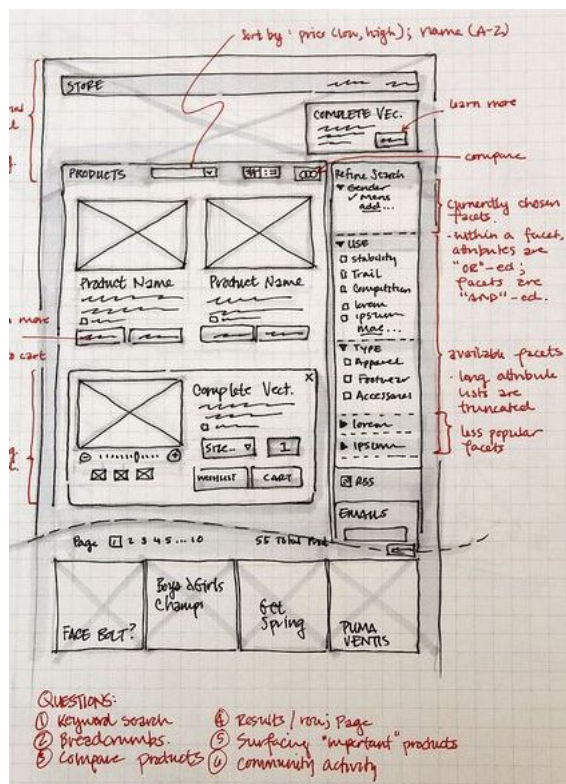 sort by: price (low, high); name (A-Z)
STORE
COMPLETE VEC.
learn more
compare
PRODUCTS
Refine Search
▼ Gender
✓ Mens
add...
currently chosen facets.
- within a facet, attributes are "OR"-ed; facets are "AND"-ed.
▼ USE
stability
Trail
Competition
lorem
ipsum
more...
Product Name
Product Name
more
cart
▼ TYPE
Apparel
Footwear
Accessories
available facets
- long attribute lists are truncated
▶ lorem
▶ ipsum
less popular facets
Complete Vect.
X
SIZE..
1
WISHLIST
CART
RSS
EMAILS
Page 1 2 3 4 5 ... 10
55 Total
FACE BOLT?
Boys & Girls
Champs
Get
Spring
PUMA
VENTIS
QUESTIONS:
① Keyword search
② Breadcrumbs.
③ Compare products
④ Results / row; page
⑤ Surfacing "important" products
⑥ Community activity